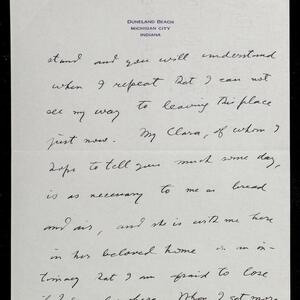 DUNELAND BEACH
MICHIGAN CITY
INDIANA
stand and you will understand
when I repeat that I can not
see my way to leaving this place
just now. My Clara, of whom I
hope to tell you much some day,
is as necessary to me as bread
and air, and she is with me here
in her beloved home in an in-
timacy that I am afraid to lose
When I get more